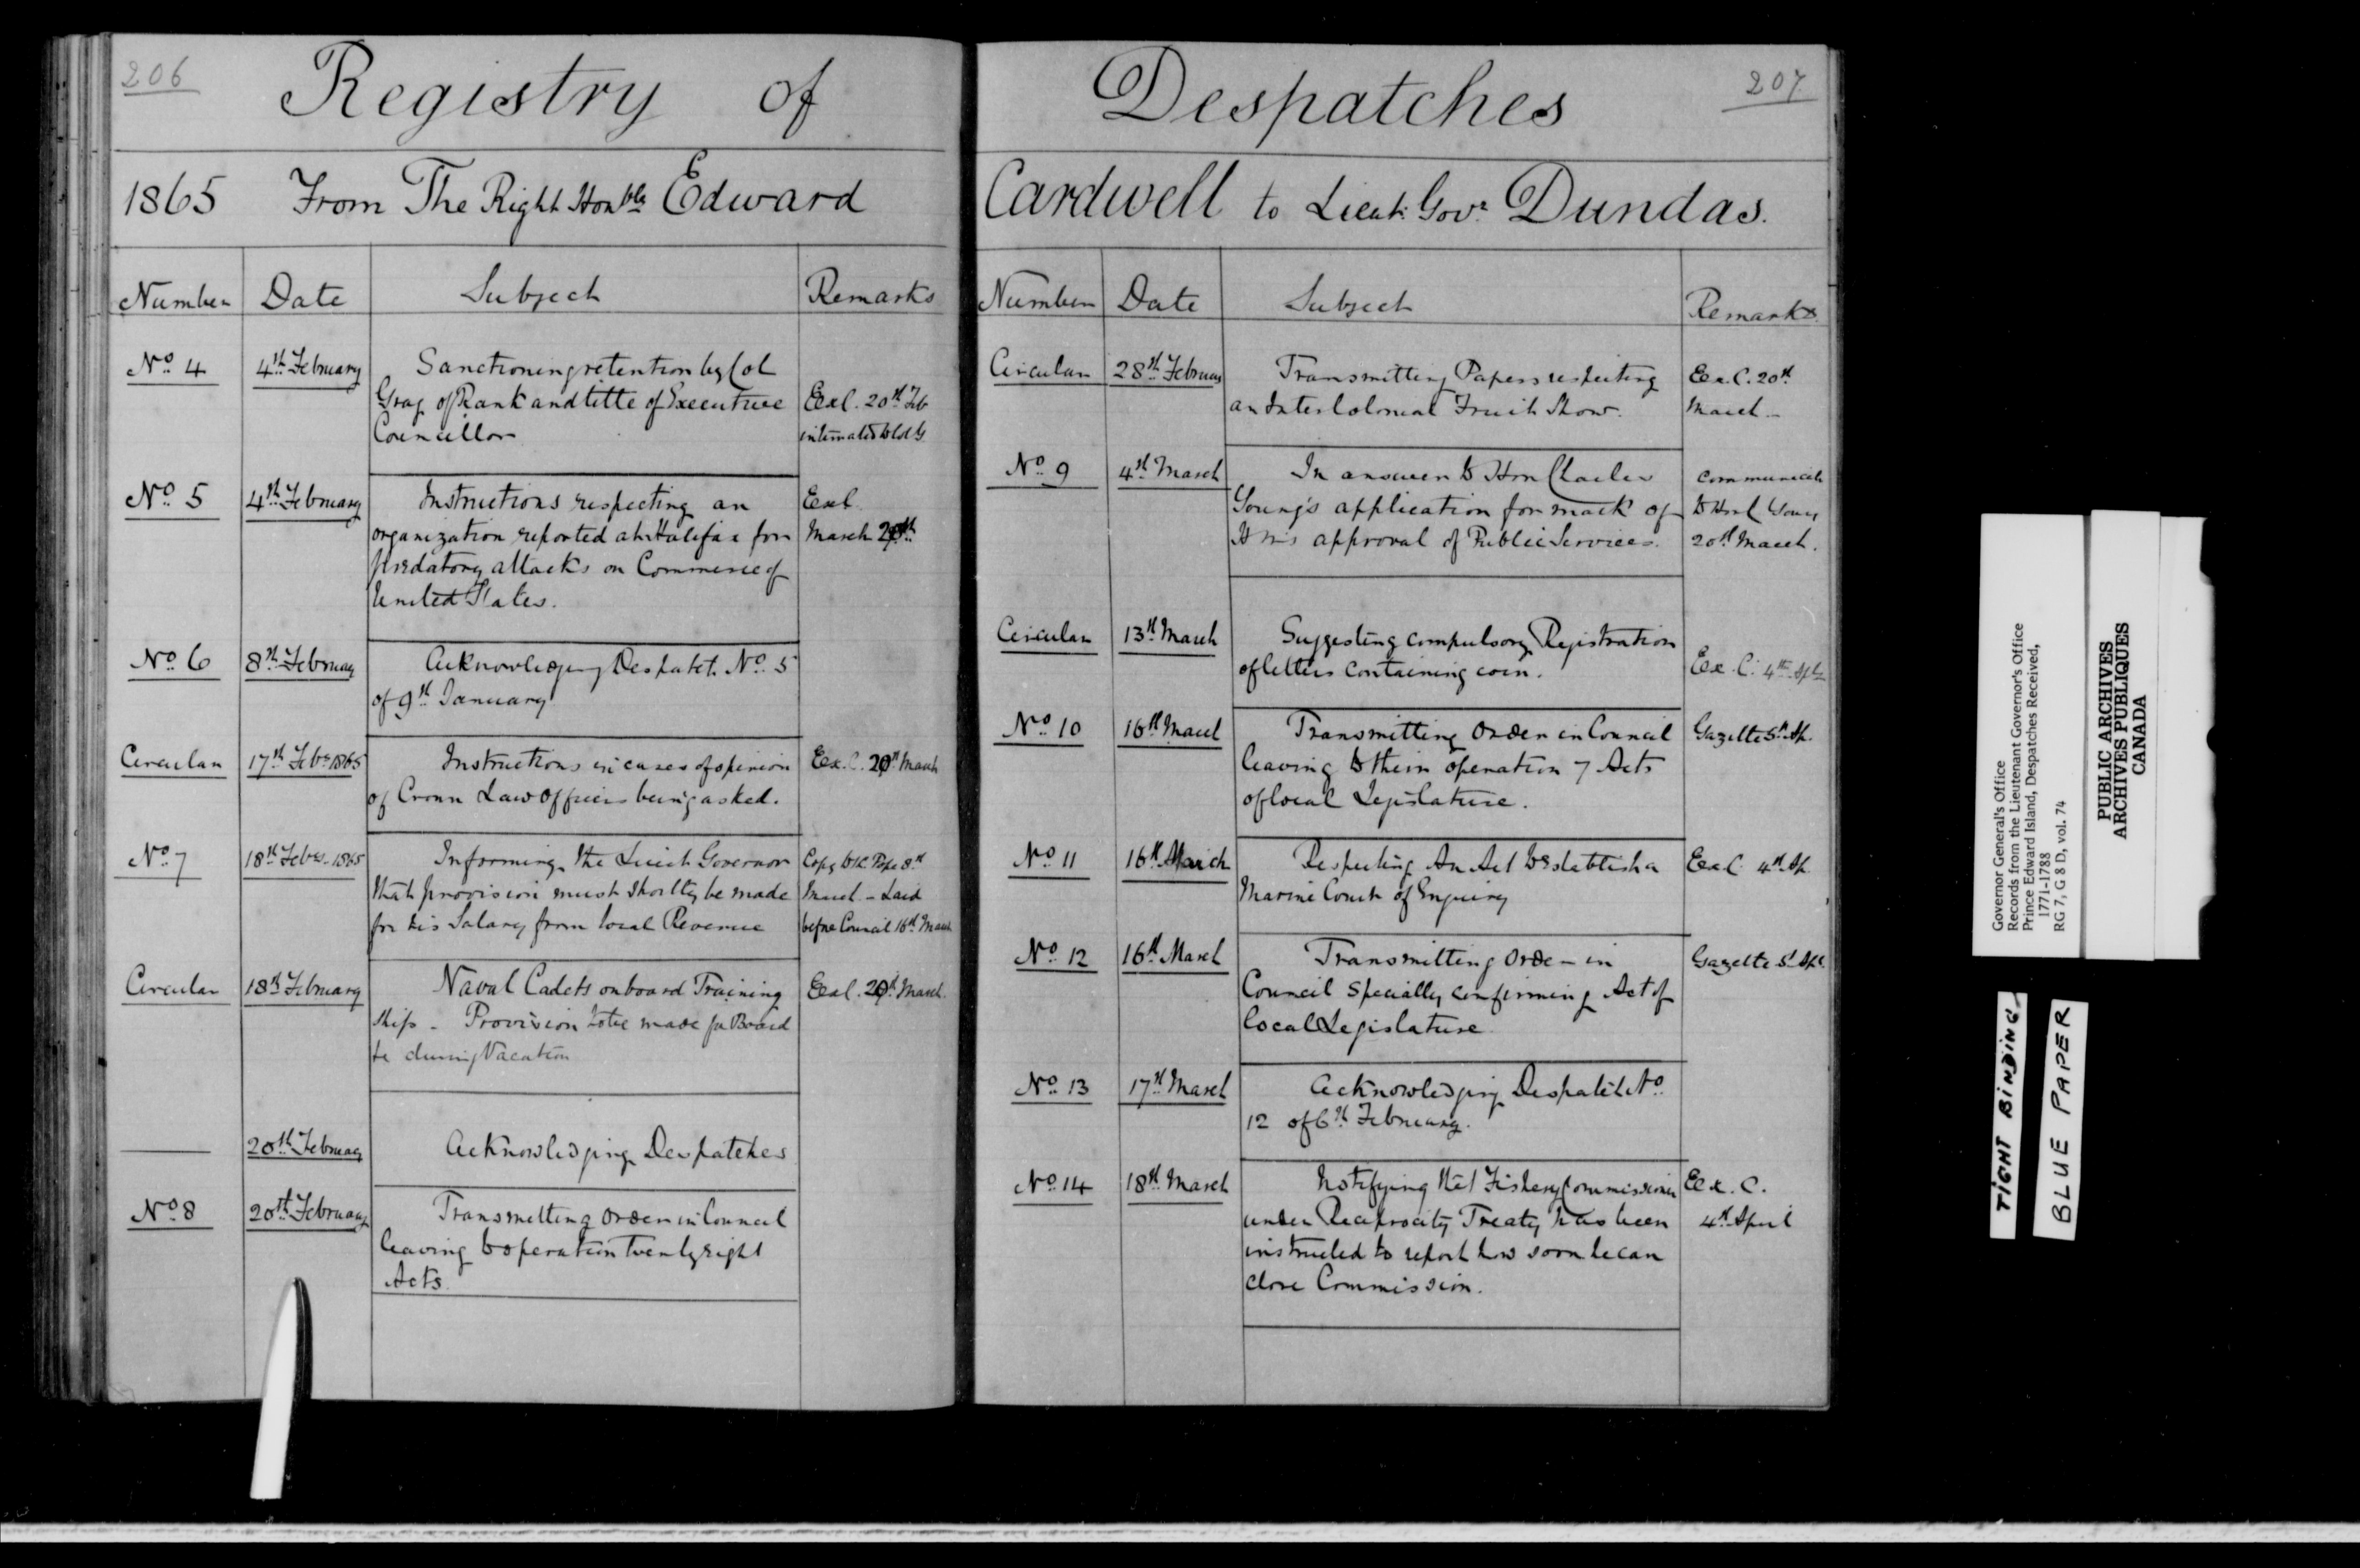 206
Registry of
1865 From The Right Honble Edward
Number Date Subject Remarks
No. 4 4th February Sanctioning retention by Col
Gray of Rank and title of Executive Exl. 20th Feb
Councillor intimated to Col G
No. 5 4th February Instructions respecting an Exl
organization reported at Halifax for March 20th
predatory attacks on Commerce of
United States.
No. 6 8th February Acknowledging Despatch No. 5
of 9th January
Circular 17th Feby 1865 Instructions in cases of opinion Ex. C. 20th March
of Crown Law Officers being asked.
No. 7 18th Feby. 1865 Informing the Lieut Governor Copy to Pope 8th
that provision must shortly be made March - Laid
for his Salary from local Revenue before Council 16th March
Circular 18th February Naval Cadets on board Training Exl. 20th March.
Ship - Provision to be made for Board
&c during Vacation
20th February Acknowledging Despatches
No. 8 20th February Transmitting Order in Council
leaving to operation twenty eight
Acts.
207
Despatches
Cardwell to Lieut: Govr. Dundas.
Number Date Subject Remarks.
Circular 28th February Transmitting Papers respecting Ex. C. 20th
an Intercolonial Fruit Show. March -
No. 9 4th March In answer to Hon Charles communicated
Young's application for mark of to Hon C Young
H M's approval of Public Services. 20th March.
Circular 13th March Suggesting compulsory Registration
of letters containing coin. Ex. C. 4th Apl
No. 10 16th March Transmitting Order in Council Gazette 5th Ap.
leaving to their operation 7 Acts
of local Legislature.
No. 11 16th March Respecting An Act to establish a Ex. C. 4th Ap.
Marine Court of Enquiry
No. 12 16th March Transmitting Order in Gazette 5th Apl.
Council Specially confirming Act of
local Legislature
No. 13 17th March Acknowledging Despatch No.
12 of 6th February.
No. 14 18th March Notifying that Fishery Commissioner Ex. C.
under Reciprocity Treaty has been 4th April
instructed to report how soon he can
close Commission.
Governor General's Office
Records from the Lieutenant Governor's Office
Prince Edward Island, Despatches Received,
1771-1788
RG 7, G 8 D, vol. 74
PUBLIC ARCHIVES
ARCHIVES PUBLIQUES
CANADA
TIGHT BINDING
BLUE PAPER